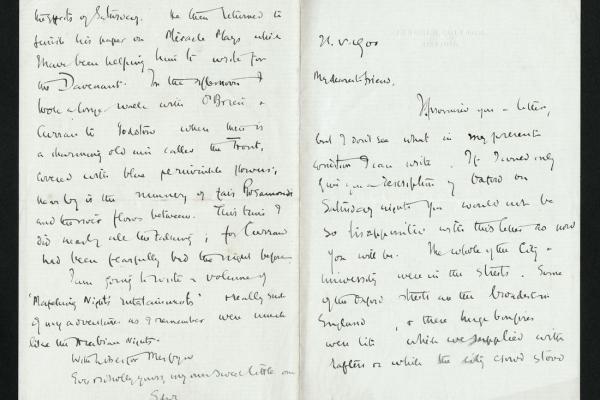 the sports of Saturday. He then returned to
finish his paper on Miracle Plays which
I have been helping him to write for
the Davenant. In the afternoon I
took a long walk with O'Brien &
Curran to Godstow where there is
a charming old inn called the Trout,
covered with blue periwinkle flowers;
near by is the nunnery of fair Rosamonde
and the river flows between. This time I
did nearly all the talking; for Curran
had been fearfully bad the night before.
I am going to write a volume of
"Mafeking Nights entertainments" really such
of my adventures as I remember were much
like the Arabian Nights.
With love to Merfyn
Ever & wholly yours my own sweet little one
Edwy
My dearest friend,
I promised you a letter,
but I don't see what in my present
condition I can write. If I could only
give you a description of Oxford on
Saturday night you would not be
so disappointed with this letter as now
you will be. The whole of the City &
University were in the streets. Some
of the Oxford streets are the broadest in
England, & there huge bonfires
were lit which we supplied with
rafters on which the city crowd stood